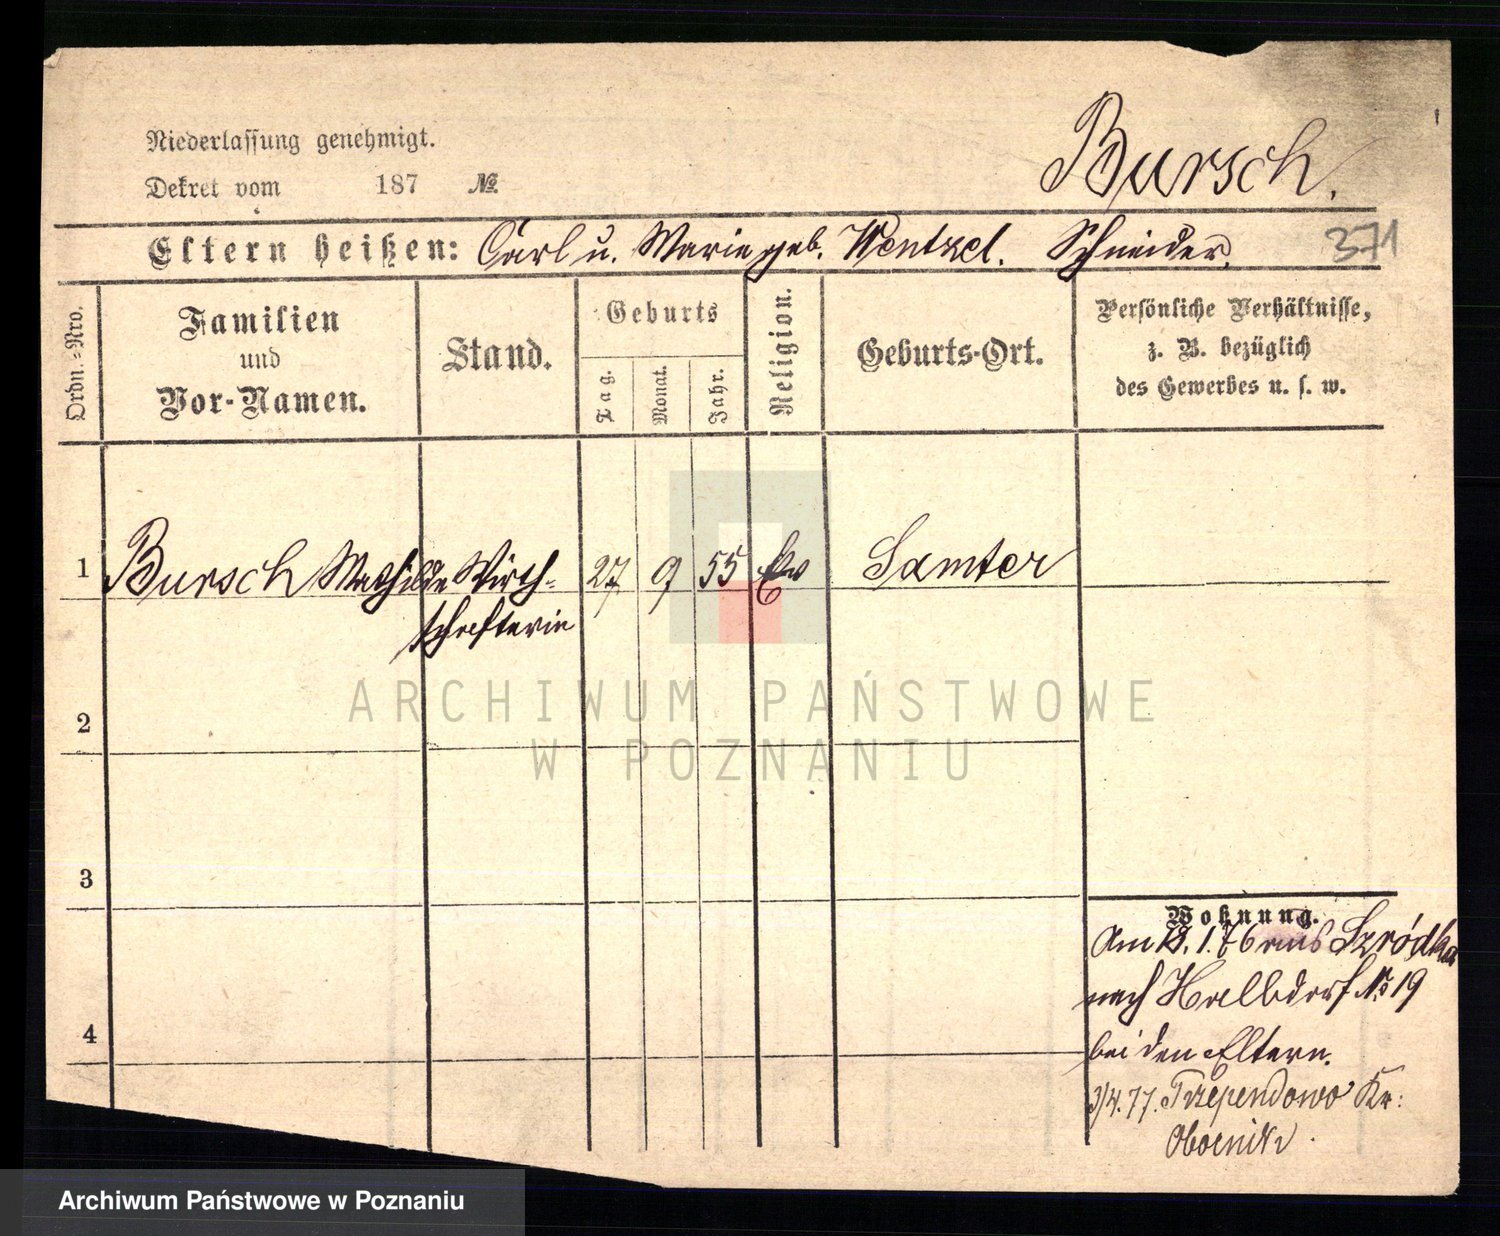 Niederlassung genehmigt.
Dekret vom 187 №
Bursch.
Eltern heißen: Carl u. Marie geb. Wentzel. Schneider.
371
Ordn.-Nro.
Familien
und
Vor-Namen.
Stand.
Geburts
Tag.
Monat.
Jahr.
Religion.
Geburts-Ort.
Persönliche Verhältnisse,
z. B. bezüglich
des Gewerbes u. s. w.
1 Bursch Mathilde Wirth- 27 9 55 Ev Samter
schafterin
2
3
4
Wohnung.
Am 18. 1. 76 aus Szródka
nach Halbdorf No 19
bei den Eltern.
3/4. 77. Trzependowo Kr:
Obornik
ARCHIWUM PAŃSTWOWE
W POZNANIU
Archiwum Państwowe w Poznaniu